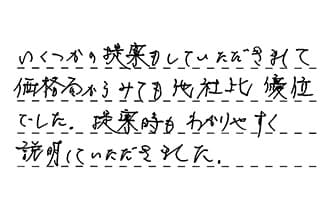 いくつかの提案もしていただきまして
価格面からみても他社比優位
でした。提案時もわかりやすく
説明していただきました。